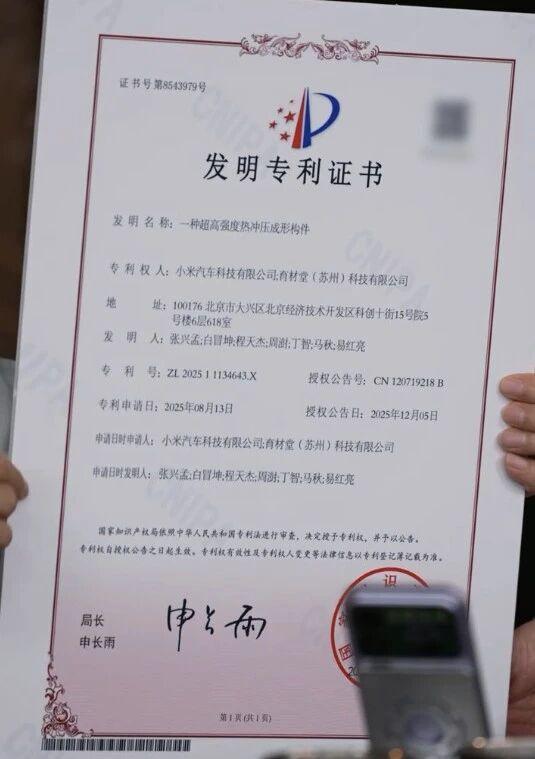 证书号第8543979号
发明专利证书
发 明 名 称：一种超高强度热冲压成形构件
专 利 权 人：小米汽车科技有限公司;育材堂（苏州）科技有限公司
地 址：100176 北京市大兴区北京经济技术开发区科创十街15号院5
号楼6层618室
发 明 人：张兴孟;白冒坤;程天杰;周澍;丁智;马秋;易红亮
专 利 号：ZL 2025 1 1134643.X 授权公告号：CN 120719218 B
专利申请日：2025年08月13日 授权公告日：2025年12月05日
申请日时申请人：小米汽车科技有限公司;育材堂（苏州）科技有限公司
申请日时发明人：张兴孟;白冒坤;程天杰;周澍;丁智;马秋;易红亮
国家知识产权局依照中华人民共和国专利法进行审查，决定授予专利权，并予以公告。
专利权自授权公告之日起生效。专利权有效性及专利权人变更等法律信息以专利登记簿记载为准。
局长
申长雨
申长雨
第 1 页 (共 1 页)
CNIPA
CNIPA
CNIPA
CNIPA